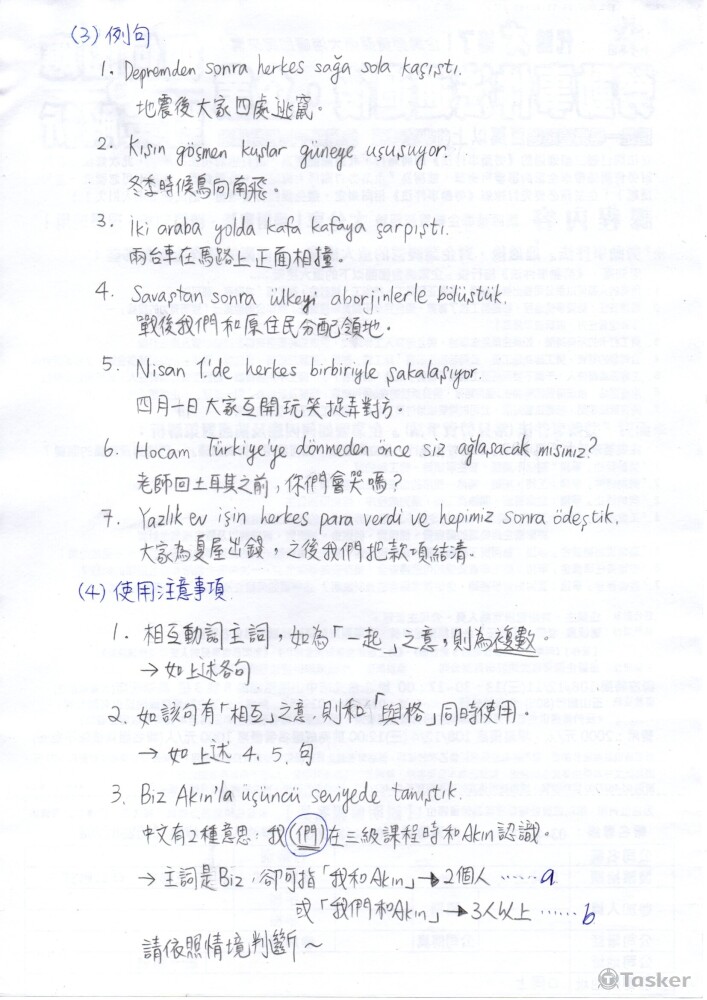 (3) 例句
1. Depremden sonra herkes sağa sola kaçıştı.
地震後大家四處逃竄。
2. Kışın göşmen kuşlar güneye uşuşuyor.
冬季時候鳥向南飛。
3. İki araba yolda kafa kafaya şarpıştı.
兩台車在馬路上正面相撞。
4. Savaştan sonra ülkeyi aborjinlerle bölüştük.
戰後我們和原住民分配領地。
5. Nisan 1.'de herkes birbiriyle şakalaşıyor.
四月一日大家互開玩笑捉弄對方。
6. Hocam Türkiye'ye dönmeden önce siz ağlaşacak mısınız?
老師回土耳其之前，你們會哭嗎？
7. Yazlık ev işin herkes para verdi ve hepimiz sonra ödeştik.
大家為夏屋出錢，之後我們把款項結清。
(4) 使用注意事項
1. 相互動詞主詞，如為「一起」之意，則為複數。
→ 如上述各句
2. 如該句有「相互」之意，則和「與格」同時使用。
→ 如上述 4. 5. 句
3. Biz Akın'la üşüncü seviyede tanıştık.
中文有2種意思：我們在三級課程時和Akın認識。
→ 主詞是Biz，卻可指「我和Akın」→ 2個人 ……a
或「我們和Akın」→ 3人以上 ……b
請依照情境判斷～
Tasker